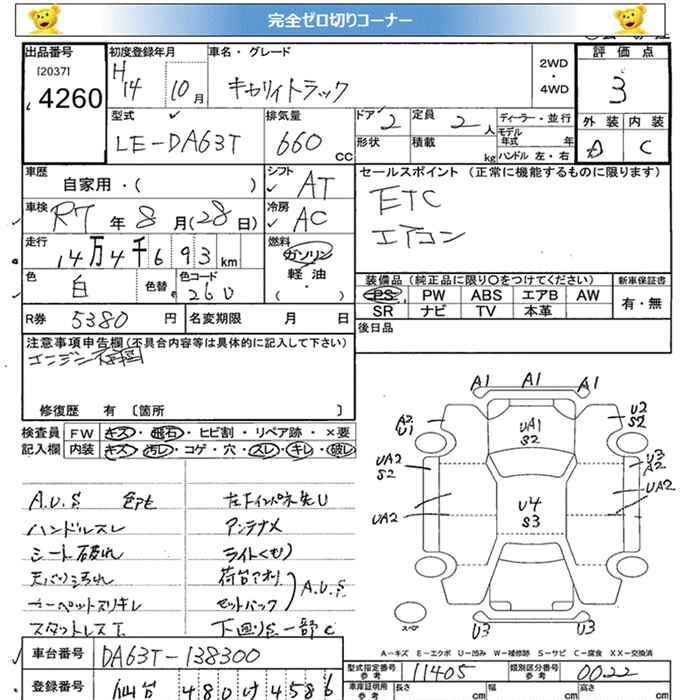 完全ゼロ切りコーナー
出品番号
[2037]
4260
初度登録年月
H14 10月
車名・グレード
キャリイトラック
2WD
・
4WD
評価点
3
外装 内装
A C
型式
LE-DA63T
排気量
660 CC
ドア 2
形状
定員 2 人
積載 kg
ディーラー・並行
モデル年式 年
ハンドル 左・右
車歴
自家用・( )
シフト
AT
セールスポイント (正常に機能するものに限ります)
ETC
エアコン
車検
R7年8月(28日)
冷房
AC
走行
14万4千693km
燃料
ガソリン
軽油
( )
色
白
色替
色コード
26U
装備品 (純正品に限り○をつけてください)
新車保証書
PS PW ABS エアB AW
SR ナビ TV 本革
有・無
R券 5380円
名変期限 月 日
後日品
注意事項申告欄(不具合内容等は具体的に記入して下さい)
エンジン不調
修復歴 有 〔箇所 〕
検査員 FW キズ・飛石・ヒビ割・リペア跡・×要
記入欄 内装 キズ・汚レ・コゲ・穴・スレ・キレ・破レ
A.U.S
ハンドルスレ
シート破れ
天バリ汚れ
カーペットスリキレ
スタットレスT
左下インパネ先U
アンテナメ
ライトくもり
荷台アオリ
セットバック
A.U.S
下回りS一部C
A1 A1 A1
A2
U1
UA1
S2
U2
S2
UA2
S2
U3
A2
UA2
U4
S3
UA2
スペア
U3 U3
A-キズ E-エクボ U-凹み W-補修跡 S-サビ C-腐食 XX-交換済
車台番号 DA63T-138300
型式指定番号
参考
11405
類別区分番号
参考
0022
登録番号 仙台 480 け 4586
車庫証明用
参考
長さ 幅 高さ
cm cm